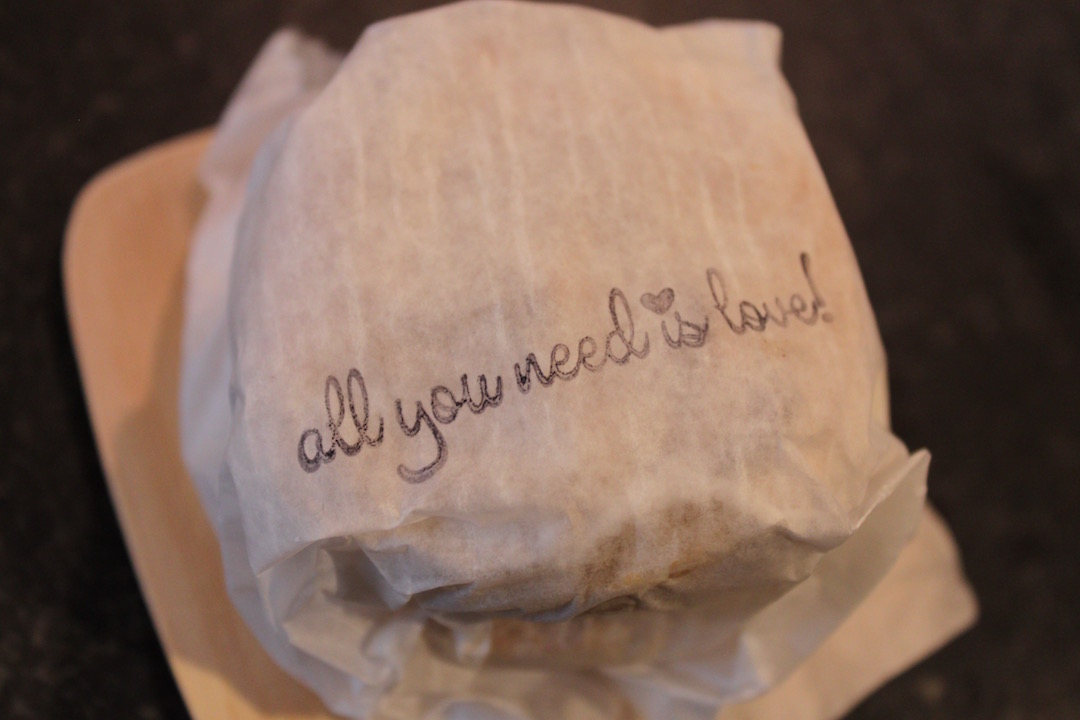 all you need is love!